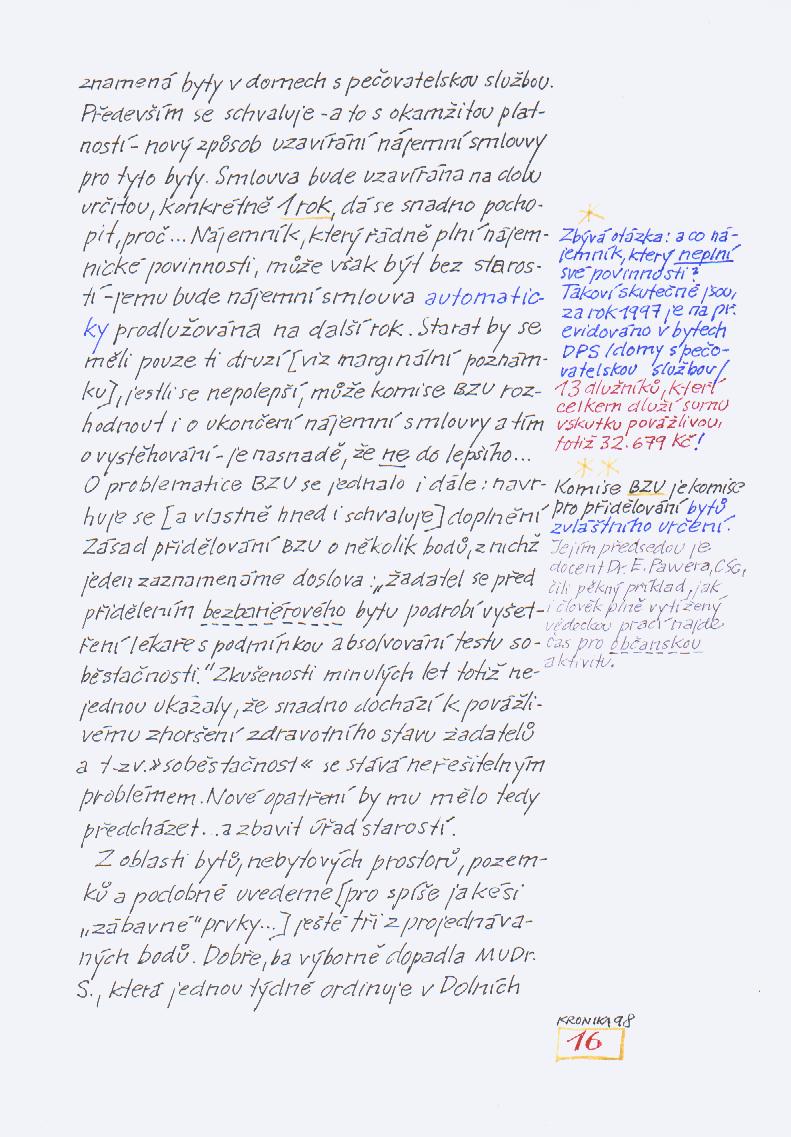 znamená byty v domech s pečovatelskou službou.
Především se schvaluje - a to s okamžitou plat-
ností - nový způsob uzavírání nájemní smlouvy
pro tyto byty. Smlouva bude uzavírána na dobu
určitou, konkrétně 1 rok, dá se snadno pocho-
pit, proč... Nájemník, který řádně plní nájem-
nické povinnosti, může však být bez staros-
tí - jemu bude nájemní smlouva automatic-
ky prodlužována na další rok. Starat by se
měli pouze ti druzí [viz marginální poznám-
ku], jestli se nepolepší, může komise BZU roz-
hodnout i o ukončení nájemní smlouvy a tím
o vystěhování - je nasnadě, že ne do lepšího...
O problematice BZU se jednalo i dále: navr-
huje se [a vlastně hned i schvaluje] doplnění
Zásad přidělování BZU o několik bodů, z nichž
jeden zaznamenáme doslova: „Žadatel se před
přidělením bezbariérového bytu podrobí vyšet-
ření lékaře s podmínkou absolvování testu so-
běstačnosti.“ Zkušenosti minulých let totiž ne-
jednou ukázaly, že snadno dochází k povážli-
vému zhoršení zdravotního stavu žadatelů
a t-zv. »soběstačnost« se stává neřešitelným
problémem. Nové opatření by mu mělo tedy
předcházet... a zbavit úřad starostí.
Z oblasti bytů, nebytových prostorů, pozem-
ků a podobně uvedeme [pro spíše jakési
„zábavné“ prvky...] ještě tři z projednáva-
ných bodů. Dobře, ba výborně dopadla MUDr.
S., která jednou týdně ordinuje v Dolních
*
Zbývá otázka: a co ná-
jemník, který neplní
své povinnosti?
Takoví skutečně jsou,
za rok 1997 je na př.
evidováno v bytech
DPS /domy s pečo-
vatelskou službou/
13 dlužníků, kteří
celkem dluží sumu
vskutku povážlivou,
totiž 32.679 Kč!
**
Komise BZU je komise
pro přidělování bytů
zvláštního určení.
Jejím předsedou je
docent Dr. E. Pawera, CSc.,
čili pěkný příklad, jak
i člověk plně vytížený
vědeckou prací najde
čas pro občanskou
aktivitu.
KRONIKA 98
16